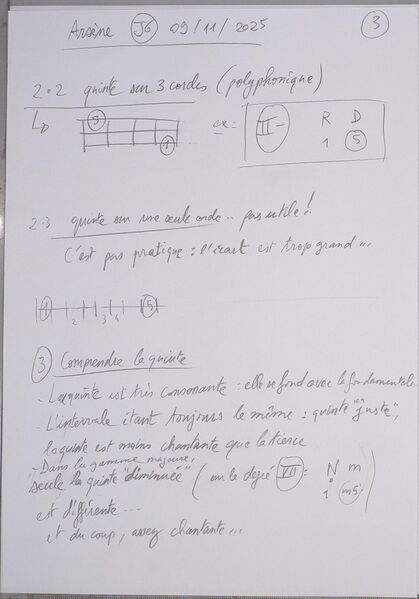 Arsène JG 09/11/2025 3
2.2 quinte sur 3 cordes (polyphonique)
5 1
ex = II- R D
1 5
2.3 quinte sur une seule corde.. pas utile!
C'est pas pratique : l'écart est trop grand...
1 2 3 4 5
3 Comprendre la quinte
- La quinte est très consonante : elle se fond avec la fondamentale
- L'intervalle étant toujours le même : quinte "juste",
la quinte est moins chantante que la tierce
- Dans la gamme majeure,
seule la quinte "diminuée" (sur le degré VII = N m
1 m5)
est différente...
et du coup, assez chantante...